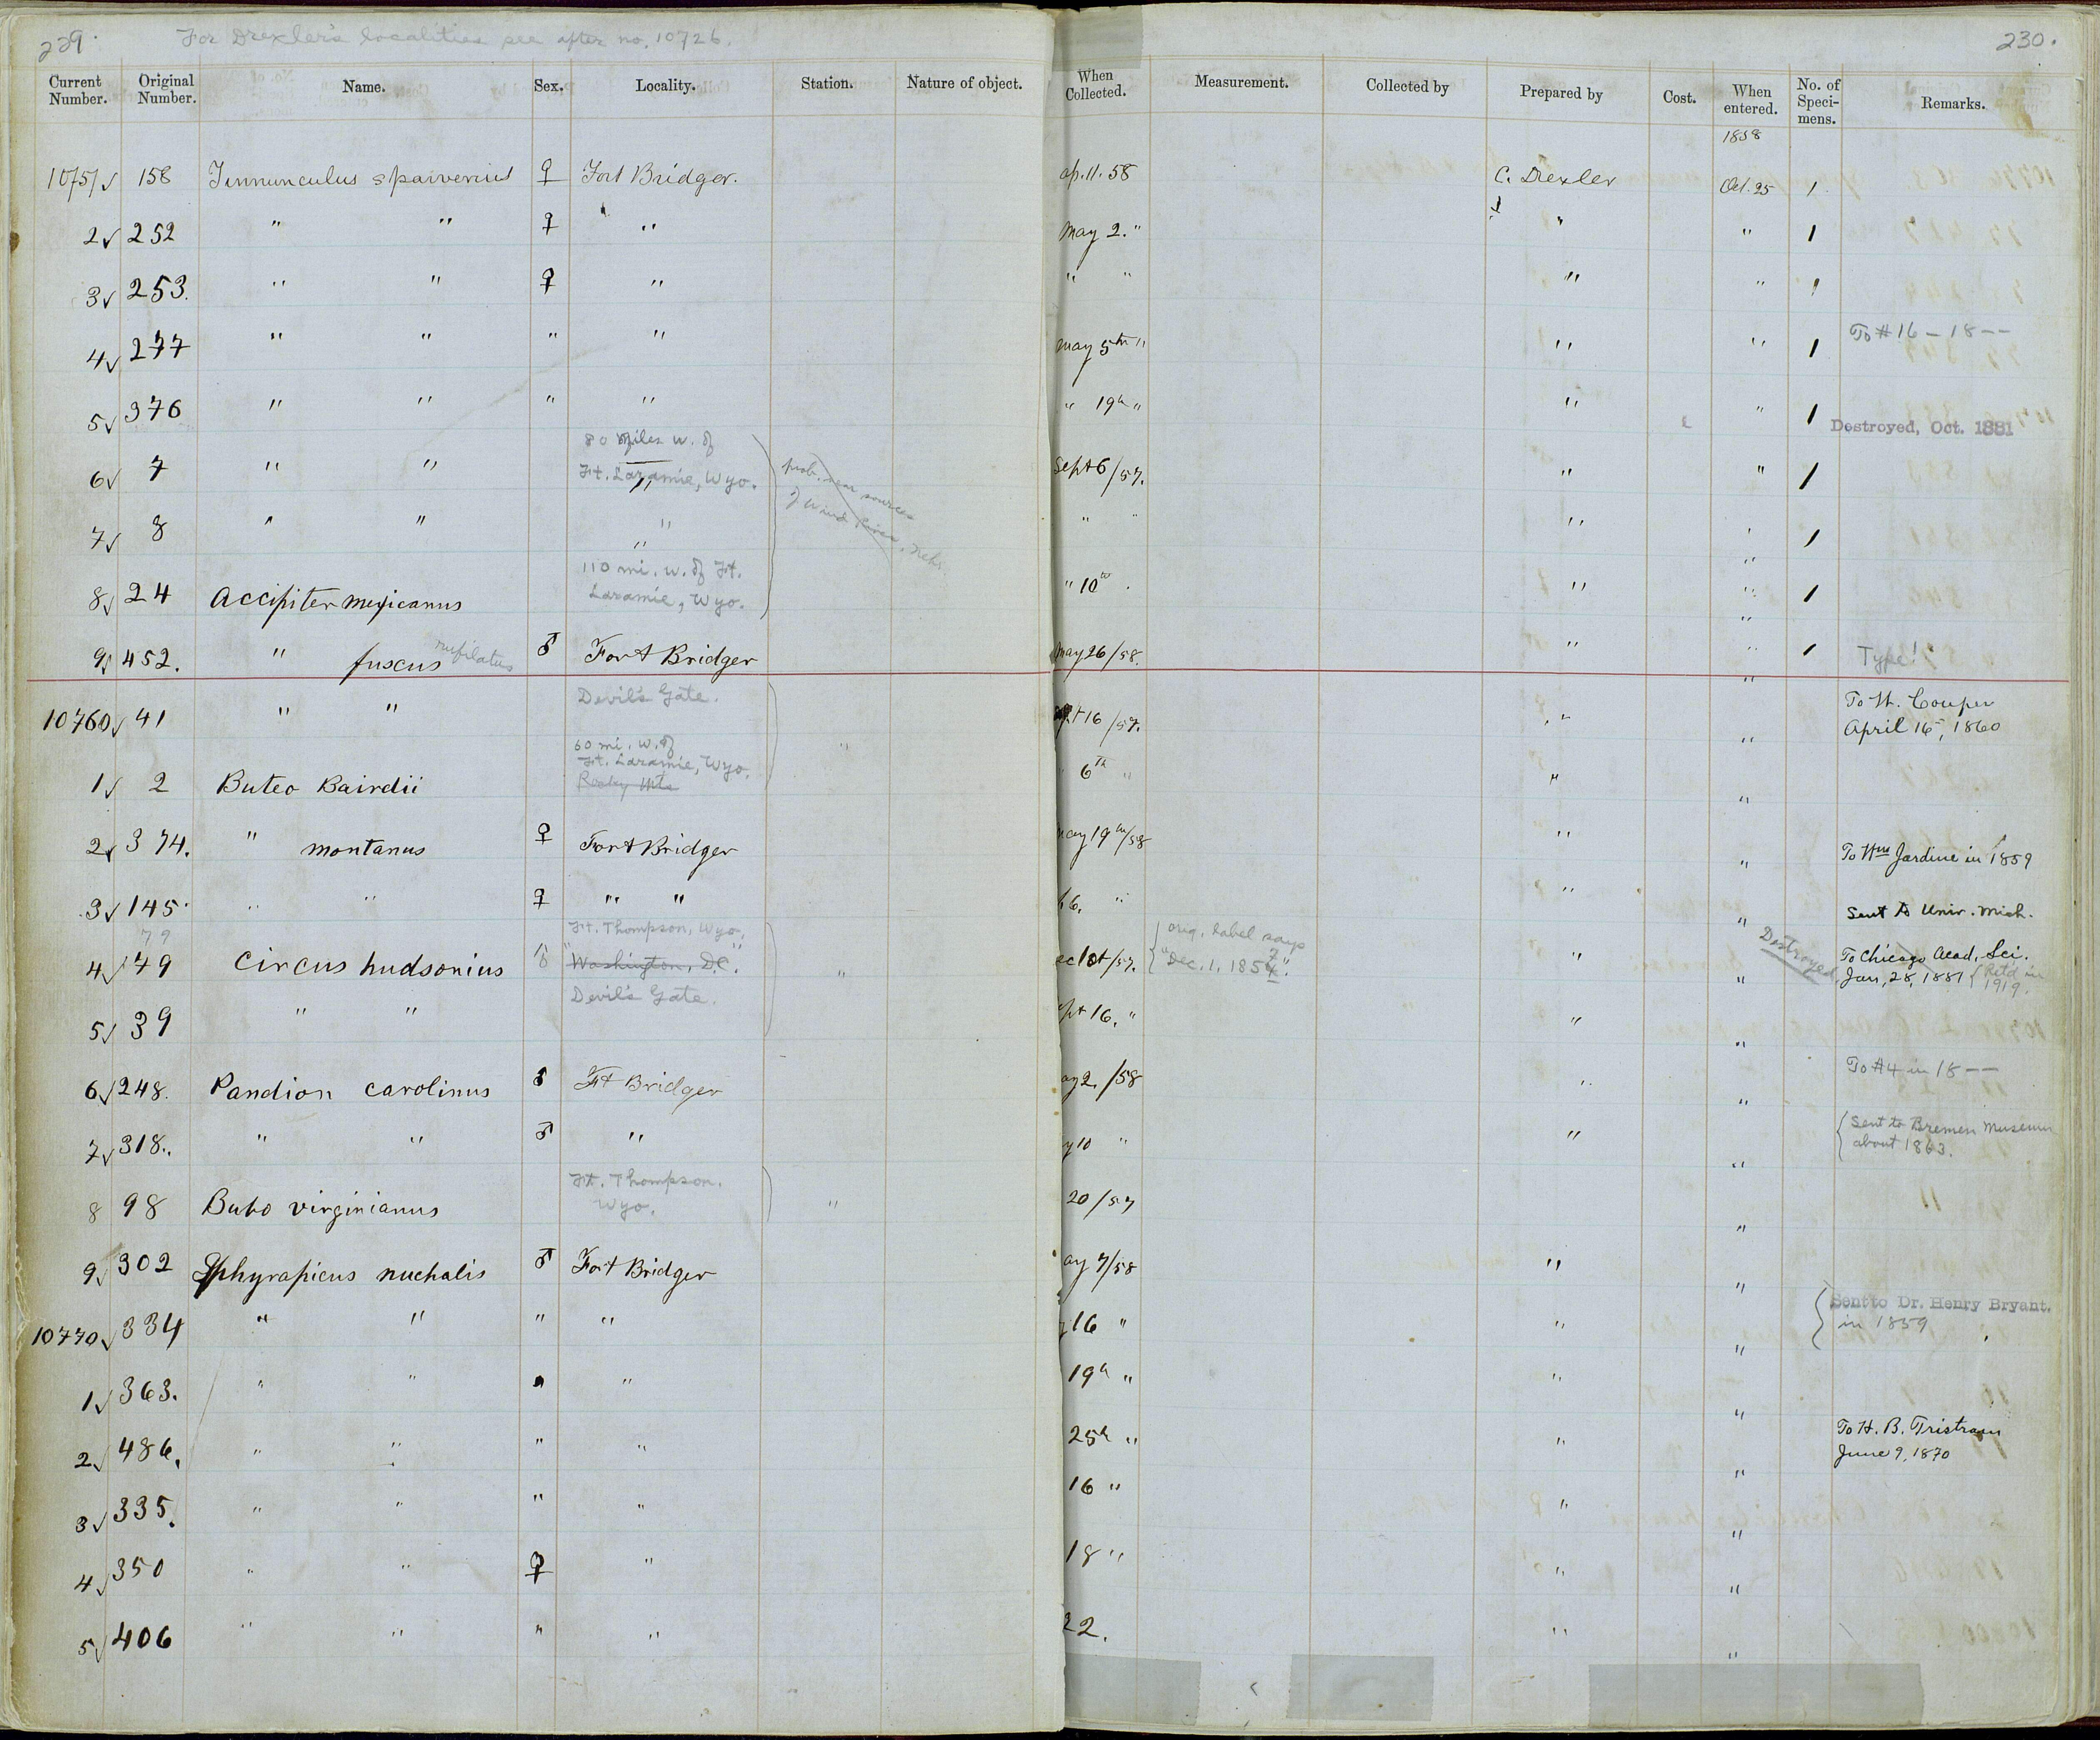 229.
For Drexler's localities see after no. 10726.
230.
Current Number. Original Number. Name. Sex. Locality. Station. Nature of object. When Collected. Measurement. Collected by Prepared by Cost. When entered. No. of Speci-mens. Remarks.
1858
10751 √ 158 Tinnunculus sparverius ♀ Fort Bridger. Ap. 11. 58 C. Drexler Oct. 25 1
2 √ 252 " " ♀ " May 2. " " " 1
3 √ 253. " " ♀ " " " " " 1
4 √ 277 " " " " May 5th " " " 1 To #16 — 18 — —
5 √ 376 " " " " " 19th " " " 1 Destroyed, Oct. 1881
80 miles w. of
6 √ 7 " " Ft. Laramie, Wyo. " prob. near sources of Wind River, Neb. Sept 6/57. " " 1
7 √ 8 " " " " " " " " 1
110 mi. w. of Ft.
8 √ 24 Accipiter mexicanus Laramie, Wyo. " 10th . " " 1
9 √ 452. " fuscus rufilatus ♂ Fort Bridger May 26/58. " " 1 Type!
10760 √ 41 " " Devil's Gate. " Sept 16/57. " " To W. Couper
April 16, 1860
60 mi. w. of
Ft. Laramie, Wyo.
1 √ 2 Buteo Bairdii Rocky Mts " 6th " " "
2 √ 374. " montanus ♀ Fort Bridger May 19th/58 " " To Wm Jardine in 1859
3 √ 145. " " ♀ " " 6. " " " Sent to Univ. Mich.
79 Ft. Thompson, Wyo. orig. label says
4 √ 179 Circus hudsonius ♂ "Washington, D.C." " ec 1st/57. "Dec. 1, 1857". " " Destroyed To Chicago Acad. Sci.
Jan. 28, 1881 { Ret'd in 1919.
5 √ 39 " " Devil's Gate. pt 16. " " "
6 √ 248. Pandion carolinus ♂ Ft Bridger ay 2. /58 " " To #4 in 18 — —
7 √ 318. " " ♂ " y 10 " " " { Sent to Bremen Museum
about 1863.
8 98 Bubo virginianus Ft. Thompson.
Wyo. " 20/57 "
9 √ 302 Sphyrapicus nuchalis ♂ Fort Bridger ay 7/58 " "
10770 √ 334 " " " " y 16 " " " { Sent to Dr. Henry Bryant.
in 1859
1 √ 363. " " " " 19th " " "
2 √ 486. " " " " 25th " " " To H. B. Tristram
June 9, 1870
3 √ 335. " " " " 16 " " "
4 √ 350 " " ♀ " 18 " " "
5 √ 406 " " " " 22. " "